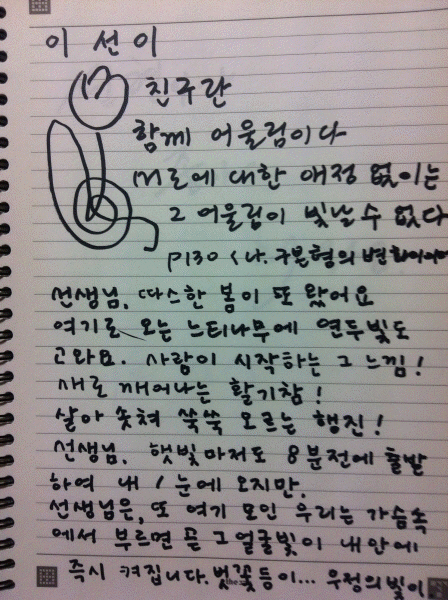 이 선이
친구란
함께 어울림이다
서로에 대한 애정 없이는
그 어울림이 빛날 수 없다
p130 <나. 구본형의 변화이야
선생님, 따스한 봄이 또 왔어요
여기로 오는 느티나무에 연두빛도
고와요. 사람이 시작하는 그 느낌!
새로 깨어나는 활기참!
살아 솟쳐 쑥쑥 오르는 행진!
선생님. 햇빛마저도 8분전에 출발
하여 내 눈에 오지만,
선생님은, 또 여기 모인 우리는 가슴속
에서 부르면 곧 그 얼굴빛이 내 안에
즉시 켜집니다. 벚꽃등이... 우정의 빛이